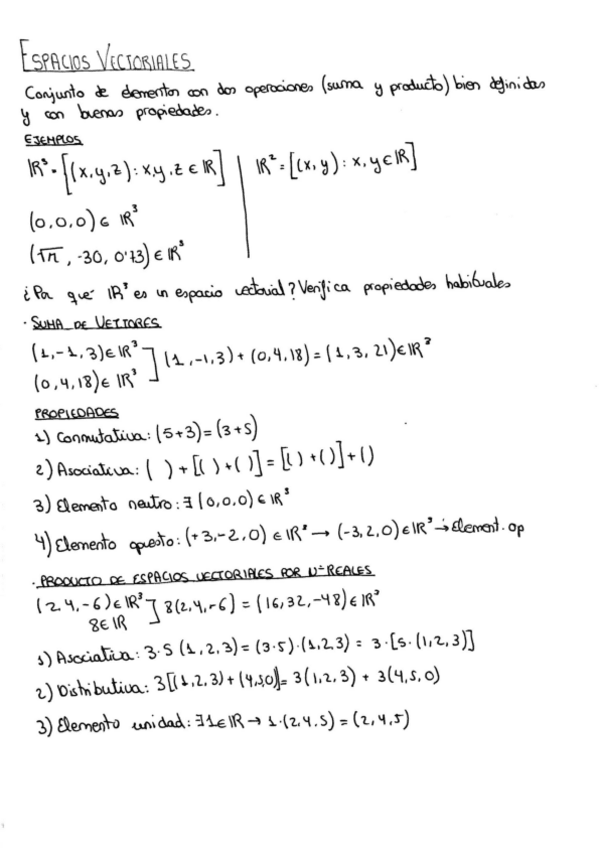 ESPACIOS VECTORIALES
Conjunto de elementos con dos operaciones (suma y producto) bien definidas
y con buenas propiedades.
EJEMPLOS
IR³ = [(x,y,z): x,y,z ∈ IR] | IR² = [(x,y): x,y ∈ IR]
(0,0,0) ∈ IR³
(√π, -30, 0'73) ∈ IR³
¿Por qué IR³ es un espacio vectorial? Verifica propiedades habituales
· SUMA DE VECTORES
(1,-1,3) ∈ IR³ ] (1,-1,3) + (0,4,18) = (1,3,21) ∈ IR³
(0,4,18) ∈ IR³
PROPIEDADES
1) Conmutativa: (5+3) = (3+5)
2) Asociativa: ( ) + [( ) + ( )] = [( ) + ( )] + ( )
3) Elemento neutro: ∃ (0,0,0) ∈ IR³
4) Elemento opuesto: (+3,-2,0) ∈ IR³ → (-3,2,0) ∈ IR³ → Element. op
· PRODUCTO DE ESPACIOS VECTORIALES POR Nº REALES
(2,4,-6) ∈ IR³ ] 8(2,4,-6) = (16,32,-48) ∈ IR³
8 ∈ IR
1) Asociativa: 3·5 (1,2,3) = (3·5)·(1,2,3) = 3·[5·(1,2,3)]
2) Distributiva: 3[(1,2,3) + (4,5,0)] = 3(1,2,3) + 3(4,5,0)
3) Elemento unidad: ∃1 ∈ IR → 1·(2,4,5) = (2,4,5)